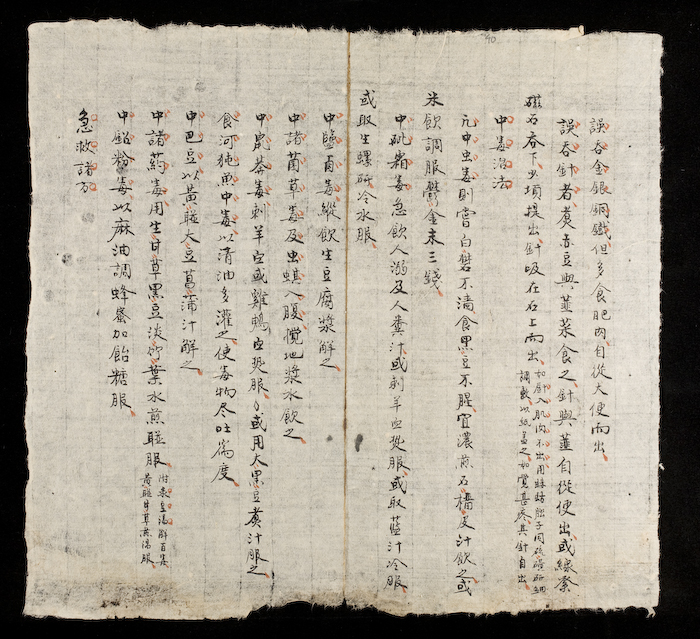 誤吞金銀銅鐵但多食肥肉自從大便而出
誤吞針者煑蚕豆與韮菜食之針與韮自從便出或線繫
磁石吞下少頃提出針吸在石上而出 如針入肌肉不出用
調敷以紙盖之如覺甚痒其針自出
中毒治法
凢中虫毒則嘗白礬不濇食黑豆不腥宜濃煎石榴皮汁飲之或
米飲調服欝金末三錢
中砒霜毒急飲人溺及人糞汁或刺羊血熱服或取藍汁冷服
或取生螺研冷水服
中鹽鹵毒縱飲生豆腐漿解之
中諸菌草毒及虫蜞入腹攪地漿水飲之
中鼠莽毒刺羊血或雞鴨血熱服〻或用大黑豆煑汁服之
食河豚魚中毒以清油多灌之使毒物尽吐為度
中巴豆以黃連大豆菖蒲汁解之
中諸葯毒用生甘草黑豆淡竹葉水煎連服 附
黃連甘草煎湯服
中鉛粉毒以麻油調蜂蜜加飴糖服
急救諸方